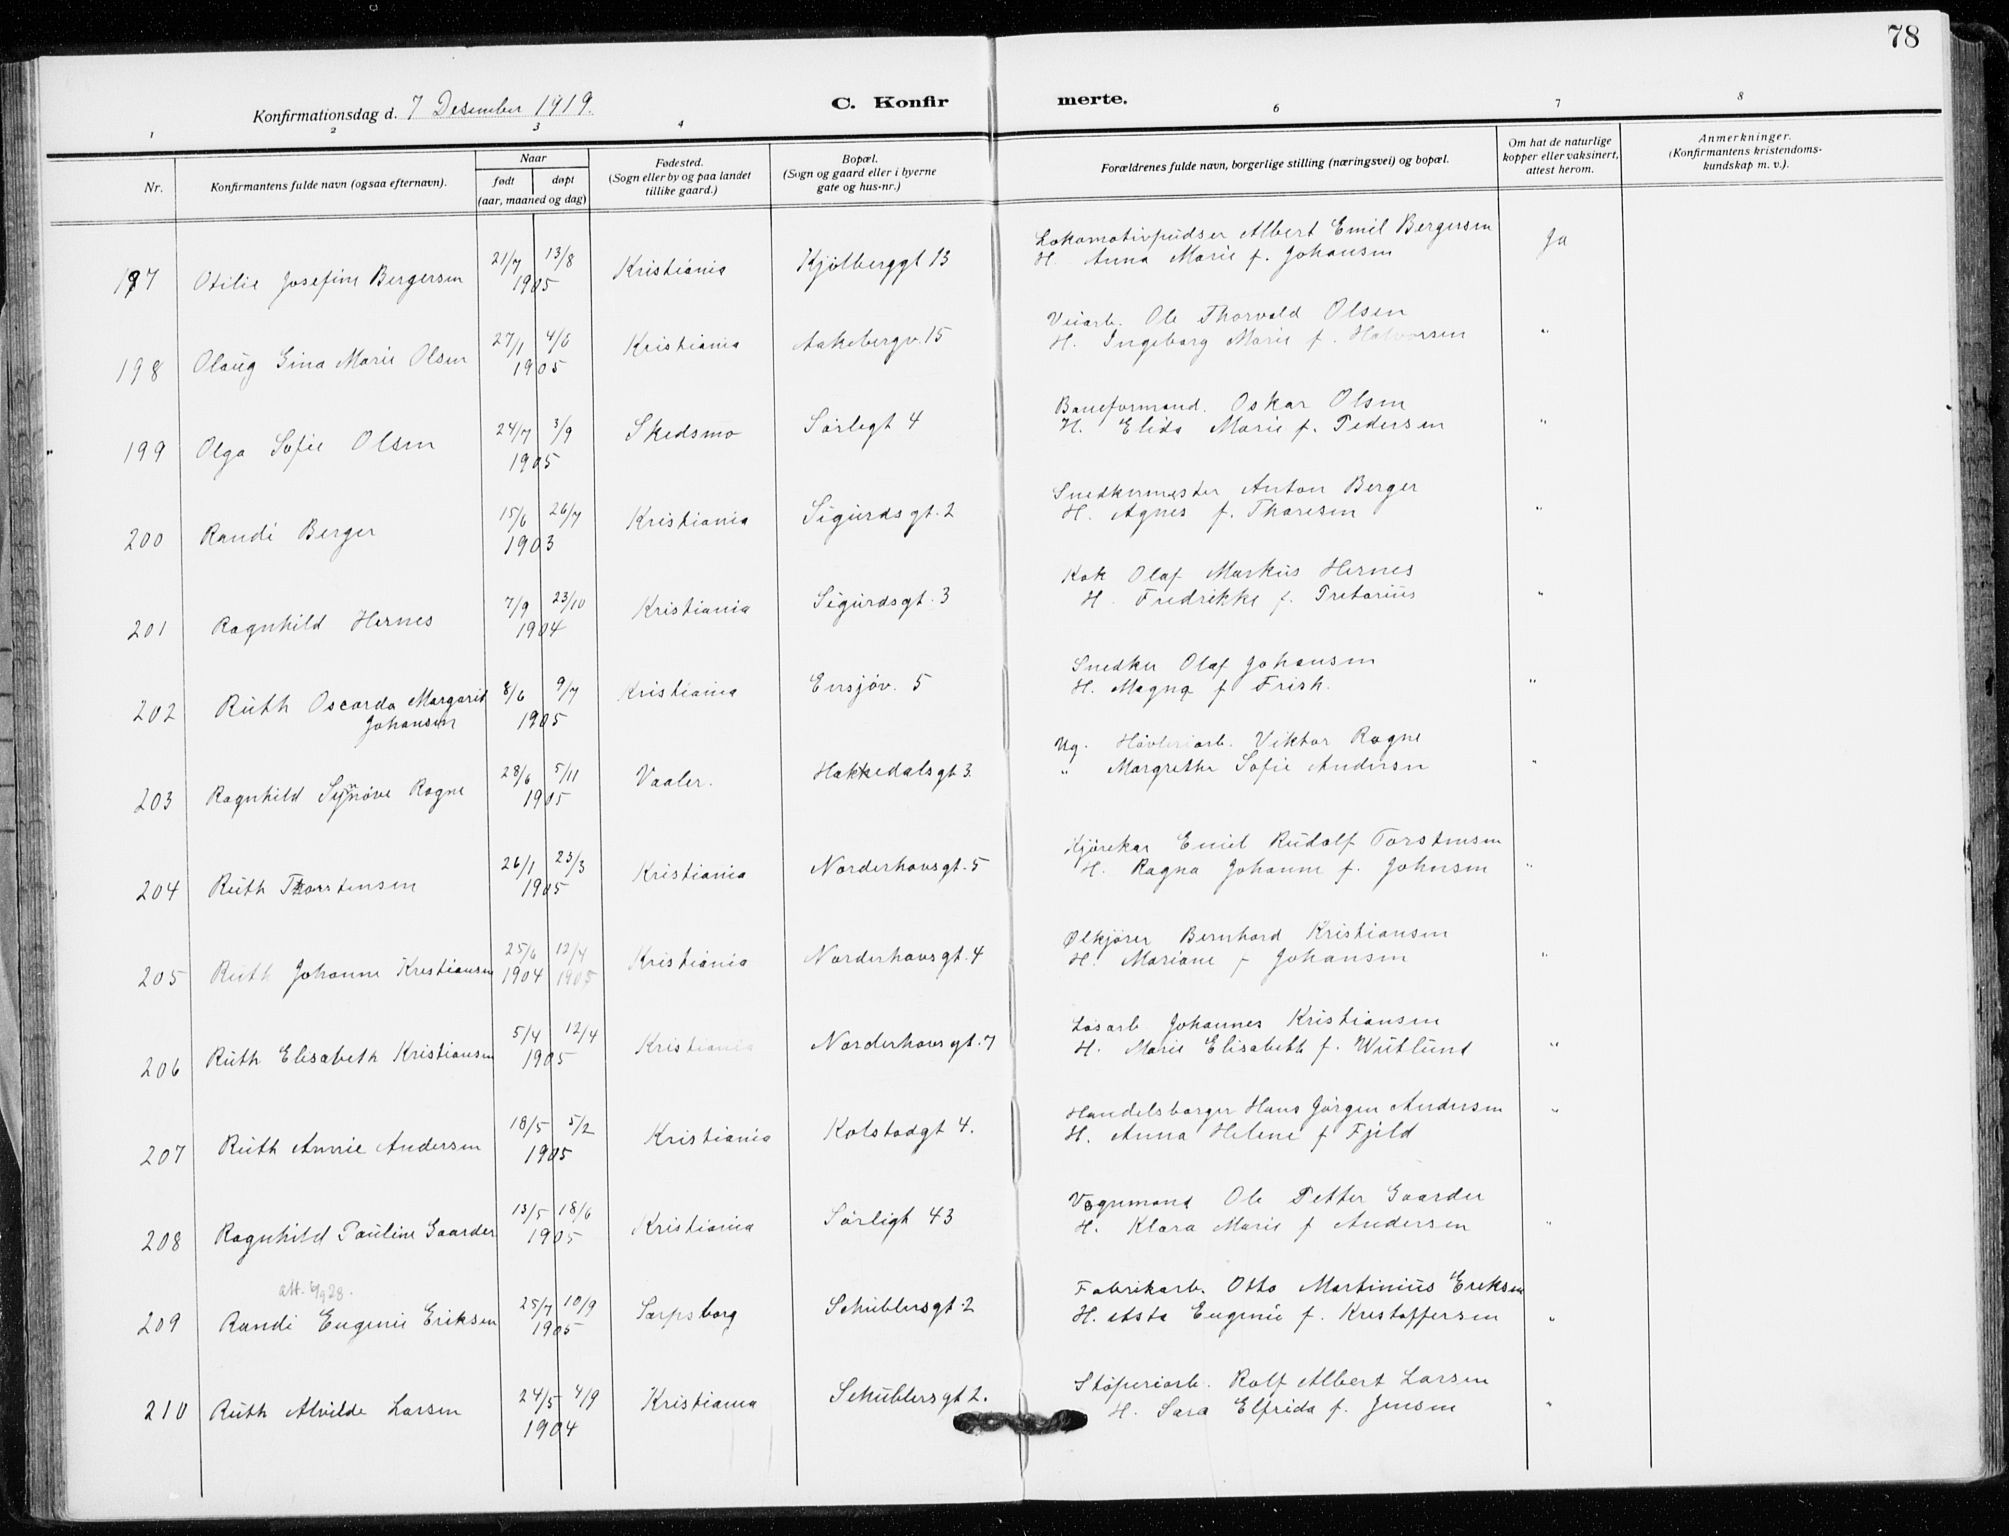 78
Konfirmationsdag d. 7 Desember 1919.
C. Konfir merte.
1 2 3 4 6 7 8
Nr.
Konfirmantens fulde navn (ogsaa efternavn).
Naar
født døpt
(aar, maaned og dag)
Fødested.
(Sogn eller by og paa landet
tillike gaard.)
Bopæl.
(Sogn og gaard eller i byerne
gate og hus-nr.)
Forældrenes fulde navn, borgerlige stilling (næringsvei) og bopæl.
Om hat de naturlige
kopper eller vaksinert,
attest herom.
Anmerkninger.
(Konfirmantens kristendoms-
kundskap m. v.).
197 Otilie Josefine Bergersen 21/7 13/8 1905 Kristiania Kjølberggt 13
Lokomotivpudser Albert Emil Bergersen
H. Anna Marie f. Johansen Ja
198 Olaug Gina Marie Olsen 27/1 4/6 1905 Kristiania Aakebergv. 15
Veiarb. Ole Thorvald Olsen
H. Ingeborg Marie f. Halvorsen "
199 Olga Sofie Olsen 24/7 3/9 1905 Skedsmo Sørlegt 4
Baneformand. Oskar Olsen
H. Elida Marie f. Pedersen "
200 Randi Berger 15/6 26/7 1903 Kristiania Sigurdsgt. 2
Snedkermester Anton Berger
H. Agnes f. Thoresen "
201 Ragnhild Hernes 7/9 23/10 1904 Kristiania Sigurdsgt. 3
Kok Olaf Markus Hernes
H. Fredrikke f. Pretorius "
202 Ruth Oscarda Margarit
Johansen 8/6 9/7 1905 Kristiania Ensjøv. 5
Snedker Olaf Johansen
H. Magna f Frish. "
203 Ragnhild Synøve Ragne 28/6 5/11 1905 Vaaler. Hakkedalsgt 3.
Ug. Høvleriarb. Viktor Ragne
" Margrethe Sofie Andersen "
204 Ruth Thorstensen 26/1 23/3 1905 Kristiania Norderhovsgt. 5
Kjørekar Emil Rudolf Torstensen
H. Ragna Johanne f. Johnsen "
205 Ruth Johanne Kristiansen 25/6 1904 12/4 1905 Kristiania Norderhovsgt. 4
Ølkjører Bernhard Kristiansen
H. Mariane f Johansen "
206 Ruth Elisabeth Kristiansen 5/4 12/4 1905 Kristiania Norderhovsgt. 7
Løsarb. Johannes Kristiansen
H. Marie Elisabeth f. Wutlund "
207 Ruth Annie Andersen 18/5 5/2 1905 Kristiania Kolstadgt 4.
Handelsborger Hans Jørgen Andersen
H. Anna Helene f Fjeld "
208 Ragnhild Pauline Gaarder 13/5 18/6 1905 Kristiania Sørligt 43
Vognmand Ole Petter Gaarder
H. Klara Marie f Andersen "
att. 6/9 28.
209 Randi Eugenie Eriksen 25/7 10/9 1905 Sarpsborg Schüblersgt. 2
Fabrikarb. Otto Martinius Eriksen
H. Asta Eugenie f. Kristoffersen "
210 Ruth Alvilde Larsen 24/5 4/9 1904 Kristiania Schüblersgt 2.
Støperiarb. Rolf Albert Larsen
H. Sara Elfrida f. Jensen "